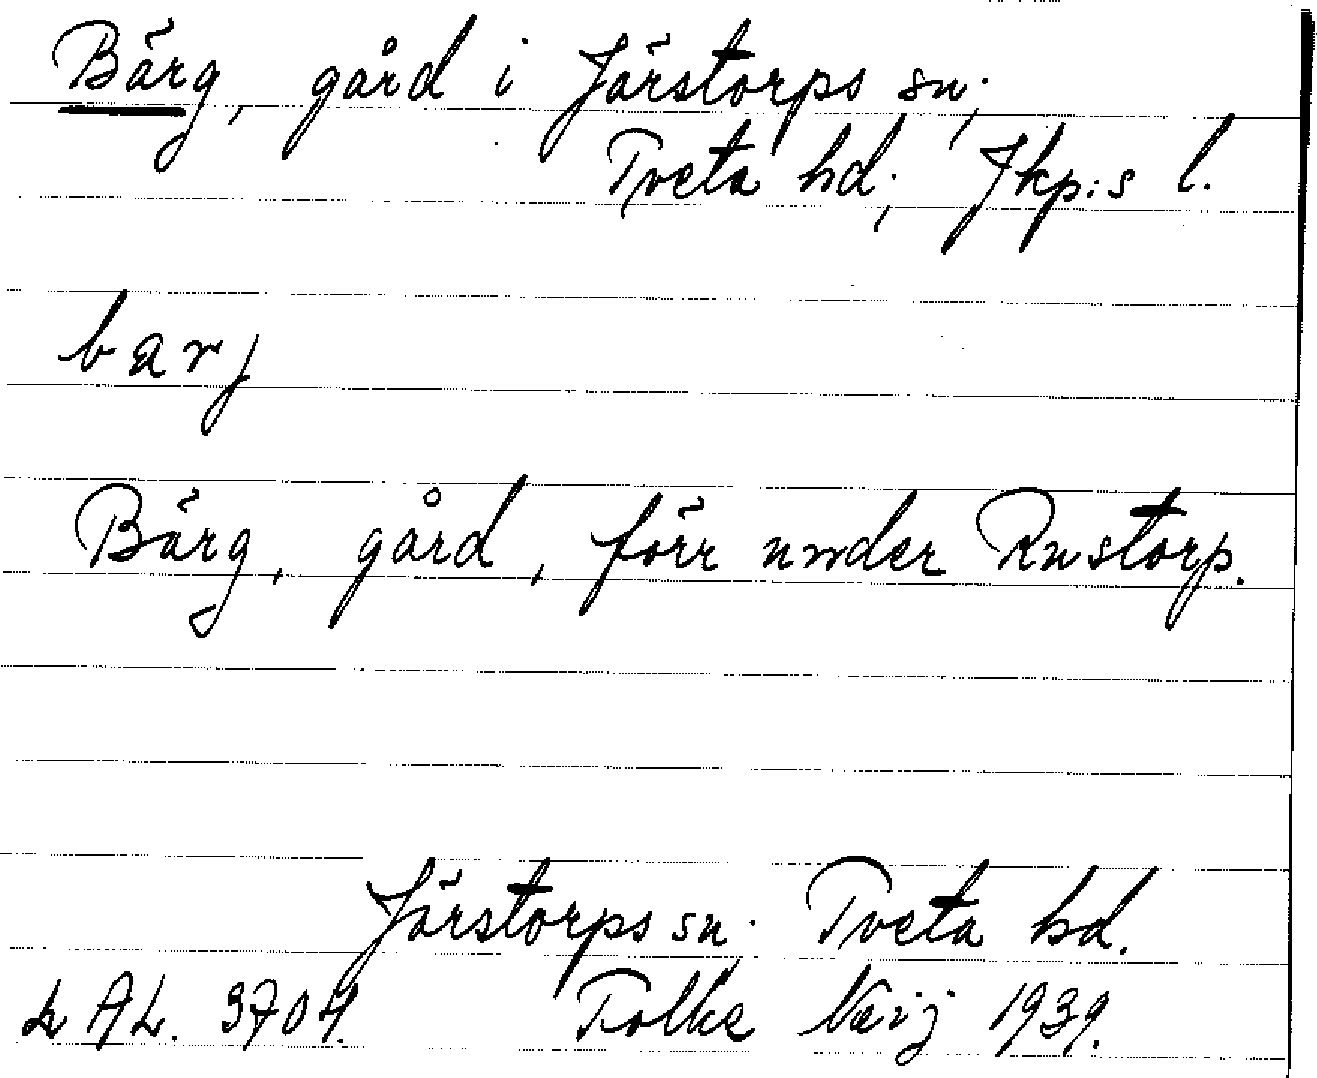 Bärg, gård i Järstorps sn;
Tveta hd; Jkp:s l.
barj
Bärg, gård, förr under Rustorp.
Järstorps sn. Tveta hd.
LAL. 3704. Folke Neij 1939.